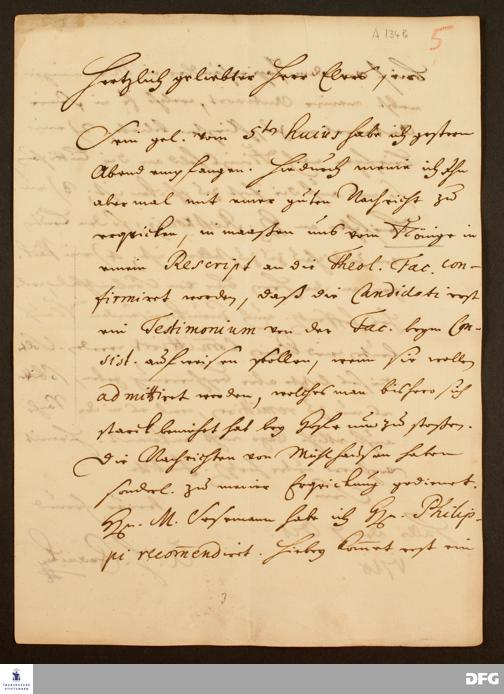 A 134 b
5
Hertzlich geliebter Herr Elers
Sein gel. vom 5ten huius habe ich gestern
Abend empfangen. Hiedurch meine ich Ihn
abermal mit einer guten Nachricht zu
erquicken, in maaßen uns vom Könige in
einem Rescript an die Theol. Fac. con-
firmiret worden, daß die Candidati erst
ein Testimonium von der Fac. beym Con-
sist. aufweisen sollen, wenn sie wollen
admittiret werden, welches man bishero sich
starck bemühet hat bey Hofe um zu stoßen.
Die Nachrichten von Mülhausen haben
sonderl. zu meiner Erquickung gedienet.
Hn. M. habe ich Hn. Philip-
pi recom̃endiret. Hiebey kom̃et erst ein
FRANCKESCHE
STIFTUNGEN
DFG